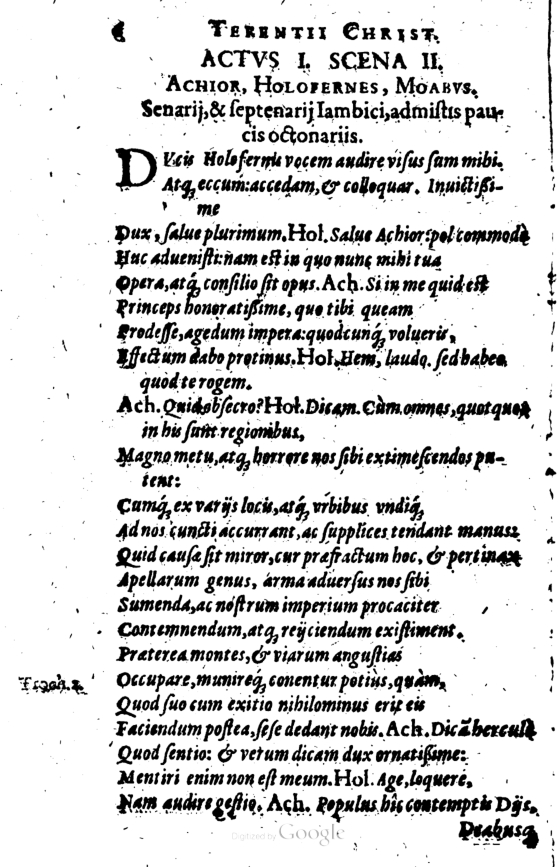 TERENTII CHRIST.
ACTVS I. SCENA II.
ACHIOR, HOLOFERNES, MOABVS.
Senarij,& ſeptenarij Iambici,admiſtis pau-
cis octonariis.
DVcis Holofernis vocem audire viſus ſum mihi.
Atq́; eccum:accedam,& colloquar. Inuictiſſi-
me
Dux, ſalue plurimum.Hol.Salue Achior:pol commodè
Huc adueniſti:nam eſt in quo nunc mihi tua
Opera,atq́; conſilio ſit opus.Ach.Si in me quid eſt
Princeps honoratiſſime, quo tibi queam
Prodeſſe,agedum impera:quodcunq́; volueris,
Effectum dabo protinus.Hol.Hem, laudo. ſed habeo
quod te rogem.
Ach.Quid obſecro?Hol.Dicam.Cùm omnes,quotquot
in his ſunt regionibus,
Magno metu,atq́; horrore nos ſibi extimeſcendos pu-
tent:
Cumq́; ex varijs locis,atq́; vrbibus vndiq́;
Ad nos cuncti accurrant,ac ſupplices tendant manus:
Quid cauſæ ſit miror,cur præfractum hoc, & pertinax
Apellarum genus, arma aduerſus nos ſibi
Sumenda,ac noſtrum imperium procaciter
Contemnendum,atq́; reijciendum exiſtiment.
Præterea montes,& viarum anguſtias
Occupare,munireq́; conentur potiùs,quàm,
Quod ſuo cum exitio nihilominus erit eis
Faciendum poſtea,ſeſe dedant nobis.Ach.Dicā herculè
Quod ſentio: & verum dicam dux ornatiſſime:
Mentiri enim non eſt meum.Hol.Age,loquere,
Nam audire geſtio. Ach. Populus hic contemptis Dijs,
Deabusq́;
Digitized by Google